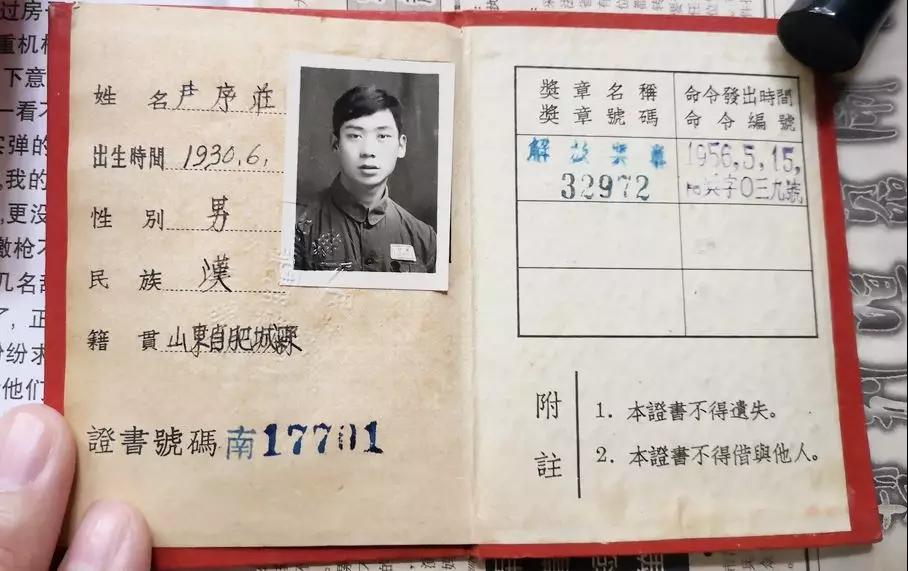 过房
重机
下意
一看
弹的
,我的
,更没
缴枪
几名
了，正
纷求
他们
姓名 序莊
出生時間 1930.6.
性別 男
民族 漢
籍貫 山東省肥城縣
證書號碼 南17701
獎章名稱
獎章號碼
命令發出時間
命令編號
解放奬章
32972
1956.5.15.
獎字〇三九號
附註
1. 本證書不得遺失。
2. 本證書不得借與他人。